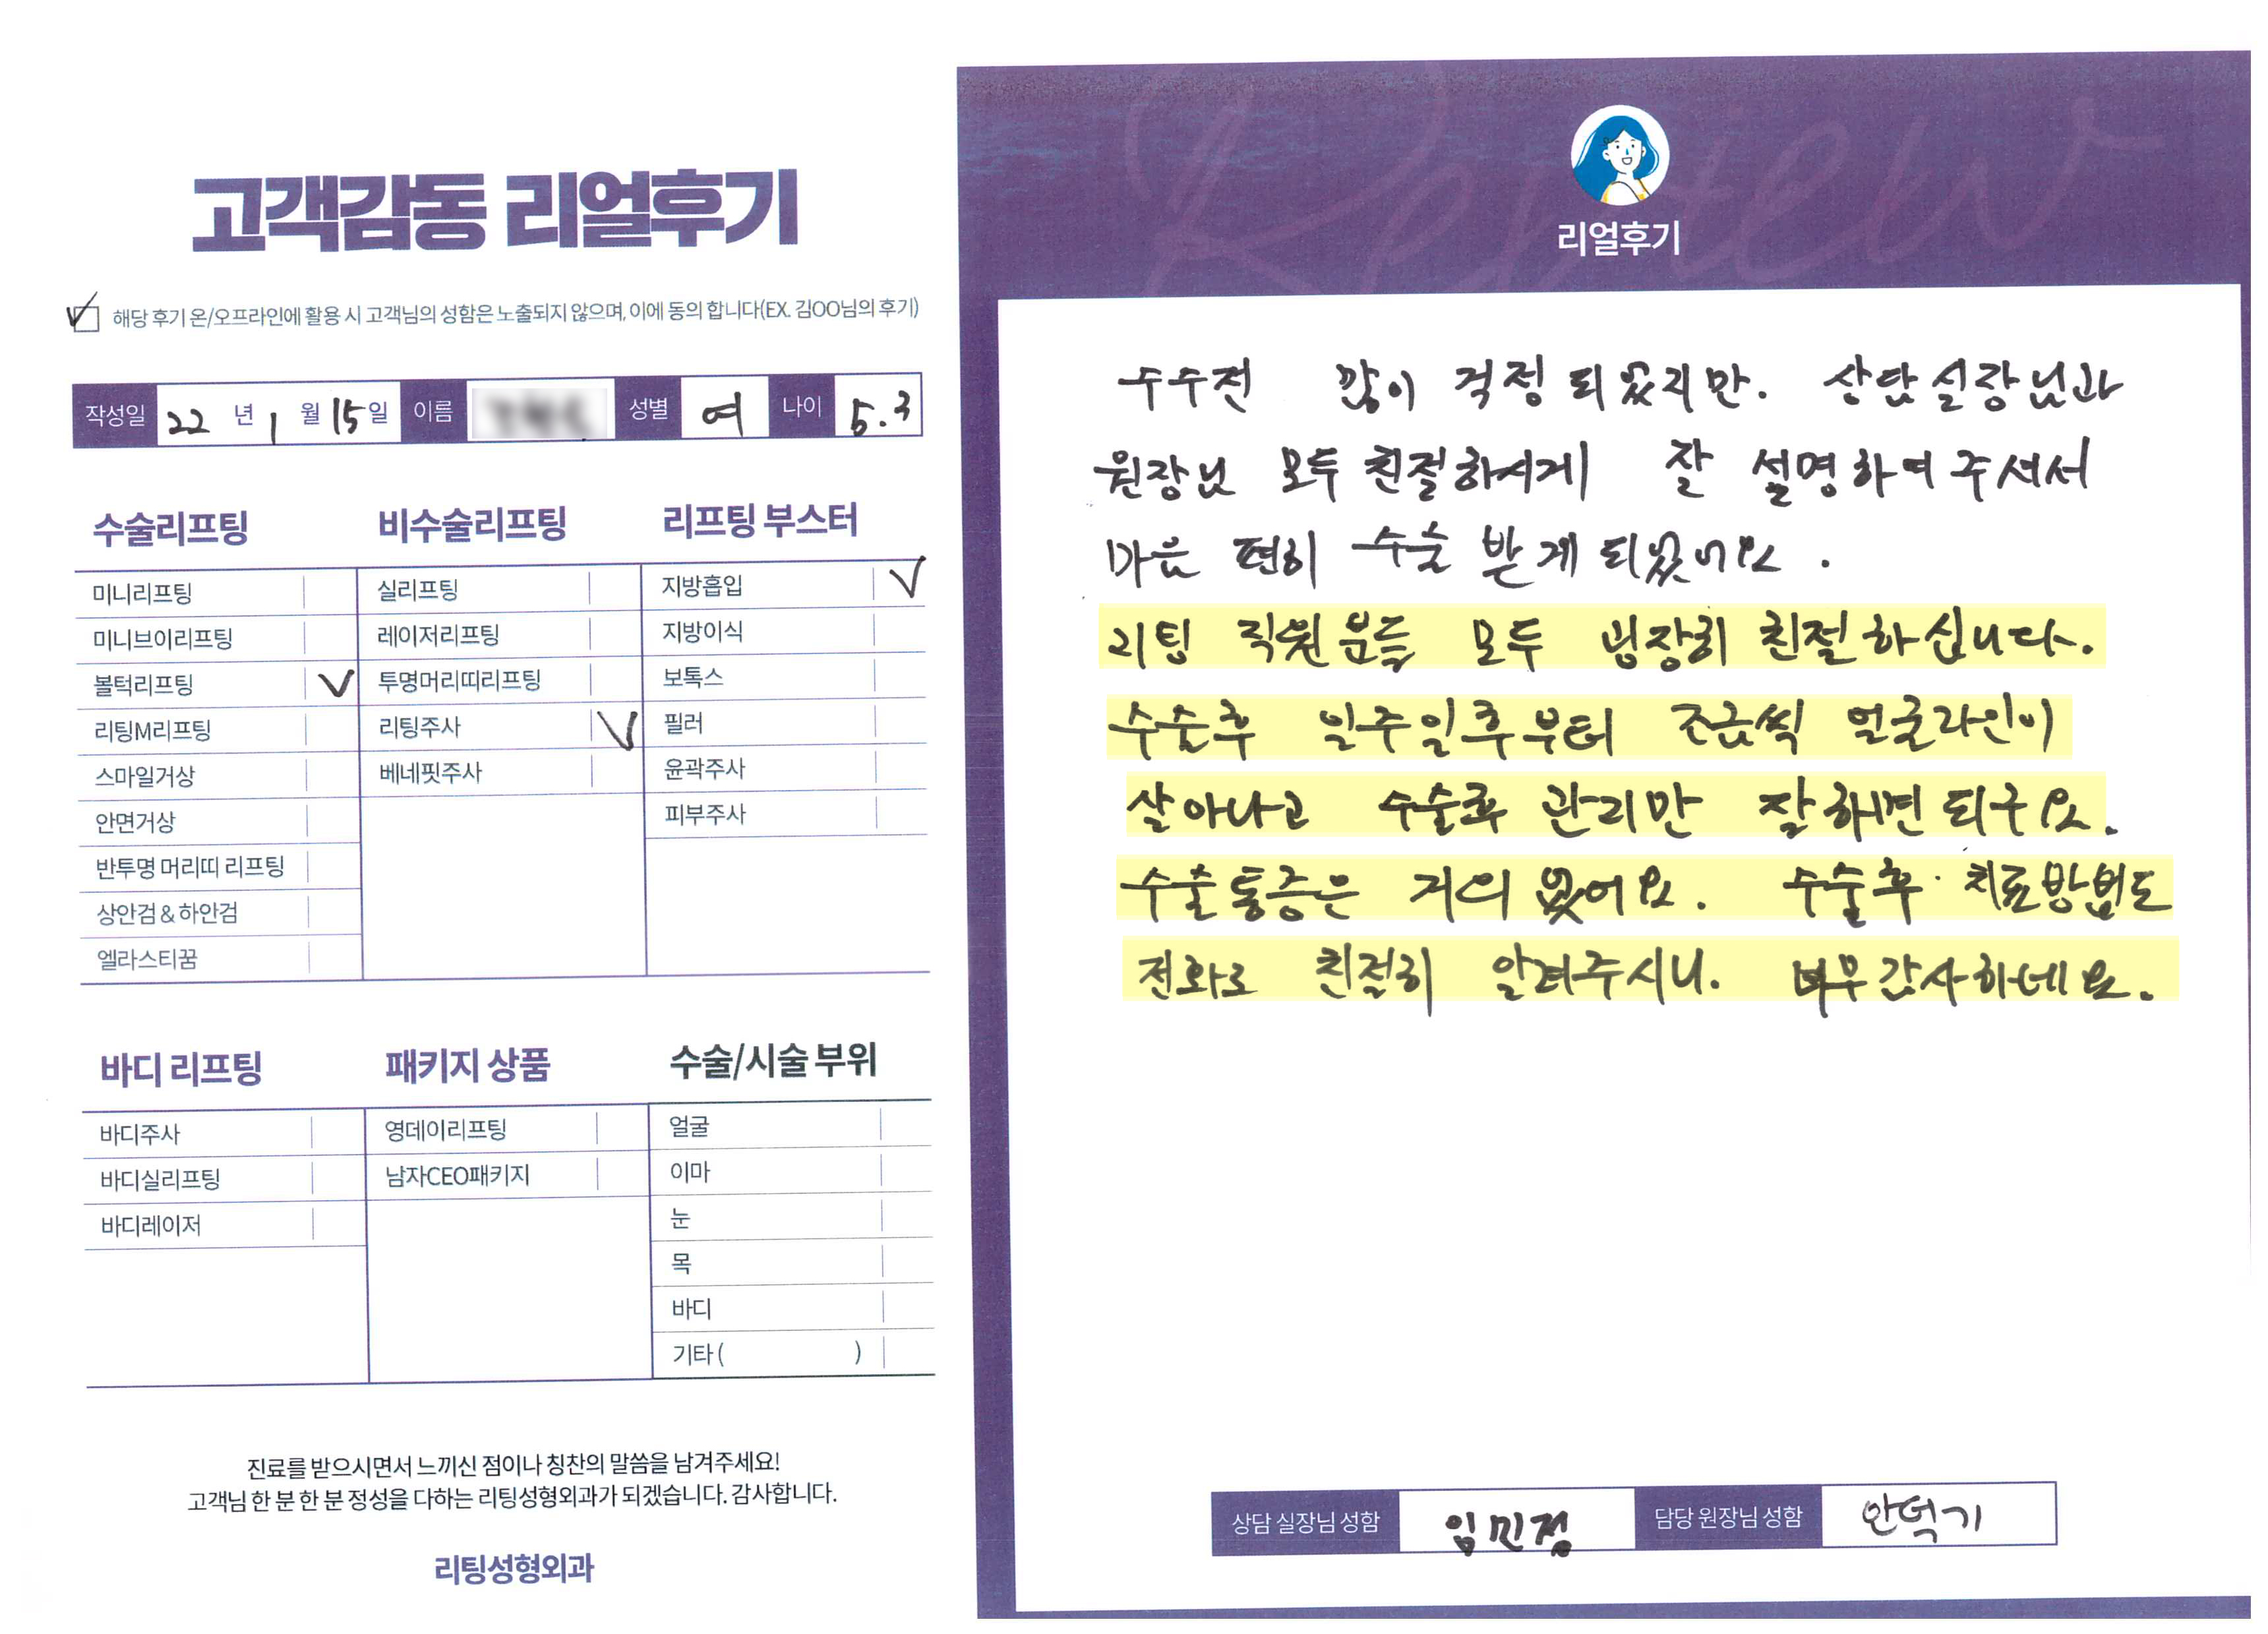 고객감동 리얼후기
해당 후기 온/오프라인에 활용 시 고객님의 성함은 노출되지 않으며, 이에 동의 합니다(EX. 김OO님의 후기)
작성일 22 년 1 월 15 일 이름 성별 여 나이 5.3
수술리프팅 비수술리프팅 리프팅 부스터
미니리프팅 실리프팅 지방흡입 ✓
미니브이리프팅 레이저리프팅 지방이식
볼턱리프팅 ✓ 투명머리띠리프팅 보톡스
리팅M리프팅 리팅주사 ✓ 필러
스마일거상 베네핏주사 윤곽주사
안면거상 피부주사
반투명 머리띠 리프팅
상안검 & 하안검
엘라스티꿈
바디 리프팅 패키지 상품 수술/시술 부위
바디주사 영데이리프팅 얼굴
바디실리프팅 남자CEO패키지 이마
바디레이저 눈
목
바디
기타 ( )
진료를 받으시면서 느끼신 점이나 칭찬의 말씀을 남겨주세요!
고객님 한 분 한 분 정성을 다하는 리팅성형외과가 되겠습니다. 감사합니다.
리팅성형외과
Review
리얼후기
수수전 많이 걱정 되었지만. 상담실장님과
원장님 모두 친절하시게 잘 설명하여주셔서
마음 편히 수술 받게 되었어요.
리팅 직원분들 모두 굉장히 친절하십니다.
수술후 일주일후부터 조금씩 얼굴라인이
살아나고 수술후 관리만 잘하면 되구요.
수술통증은 거의 없어요. 수술후 치료방법도
전화로 친절히 알려주시니. 너무감사하네요.
상담 실장님 성함 임민정 담당 원장님 성함 안덕기